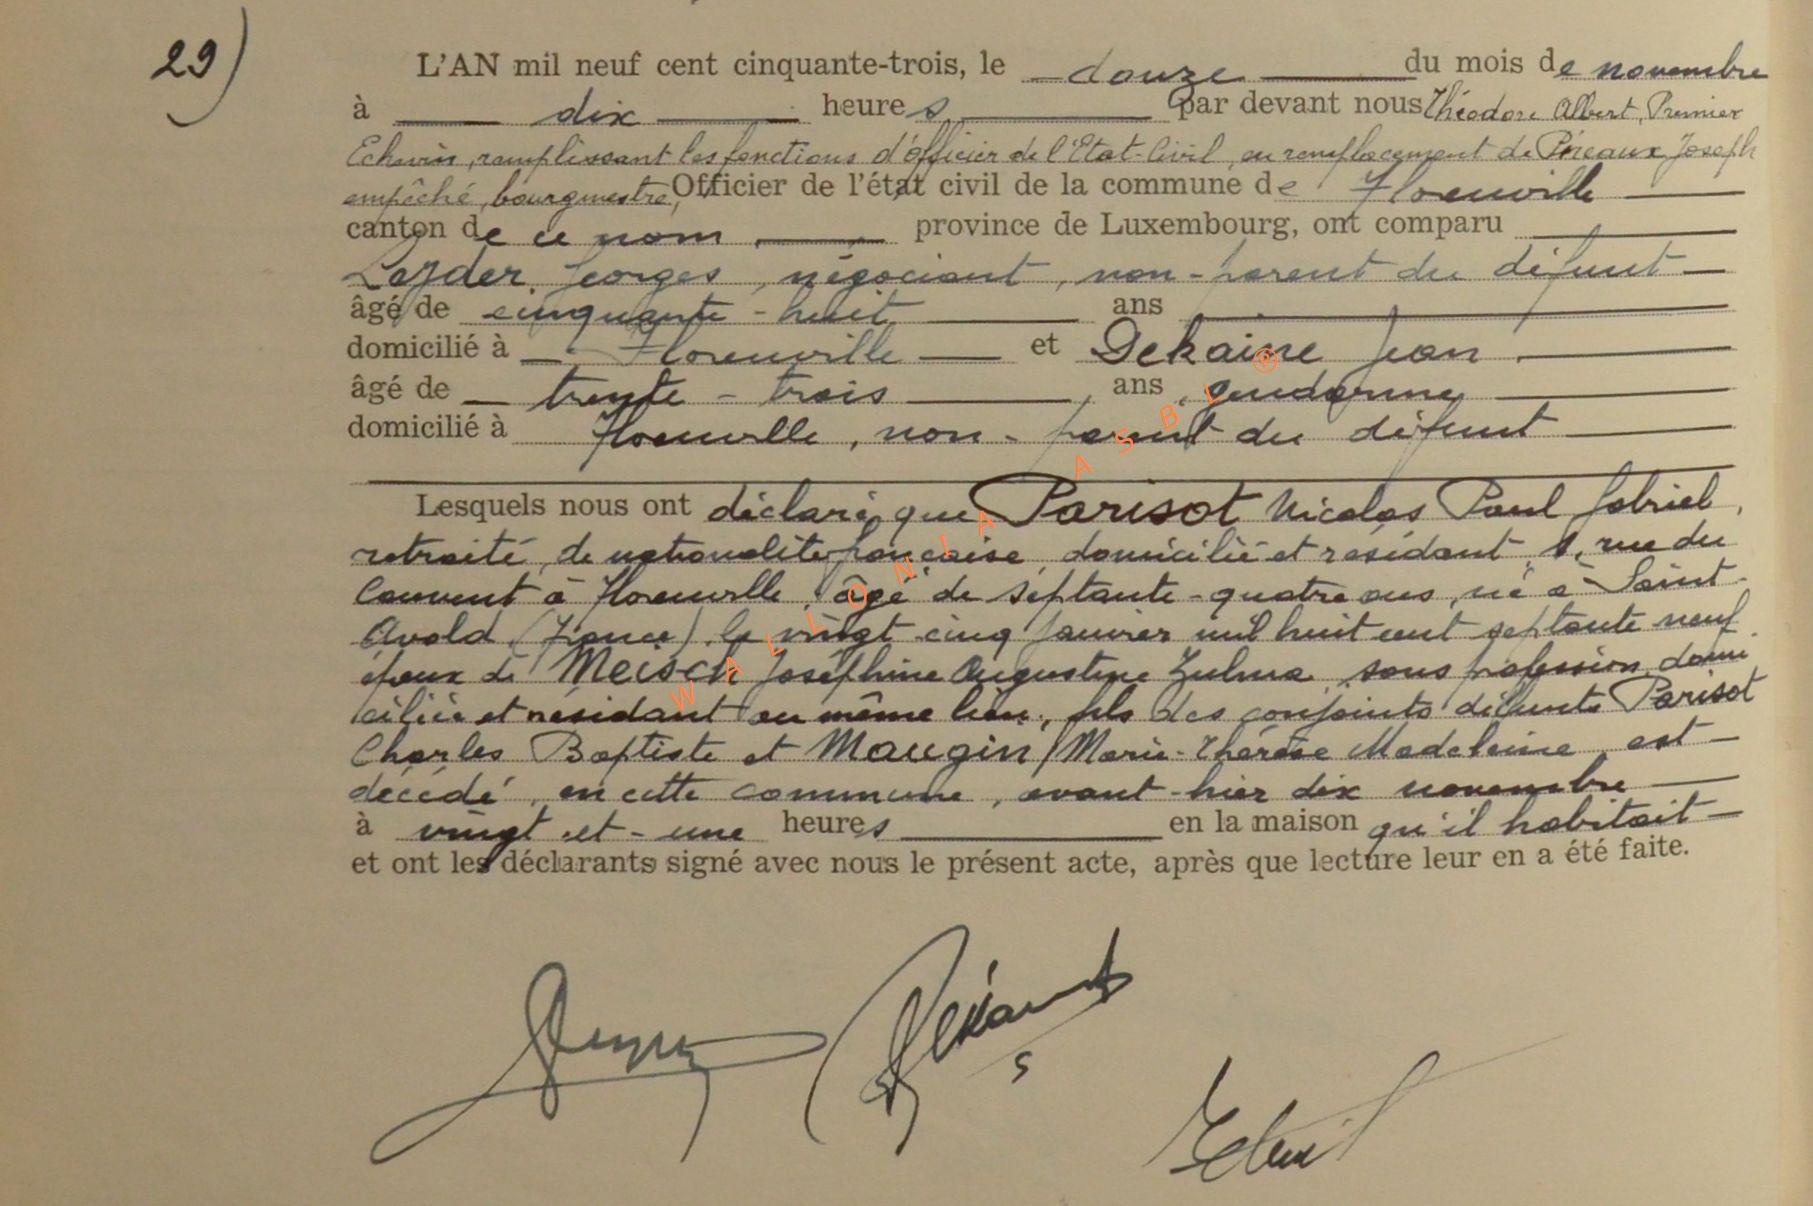 29)
L'AN mil neuf cent cinquante-trois, le douze du mois de novembre
à dix heures par devant nous Théodore Albert, Premier
Echevin, remplissant les fonctions d'officier de l'Etat-Civil, en remplacement de Piéaux Joseph
empêché, bourgmestre, Officier de l'état civil de la commune de Florenville
canton de ce nom, province de Luxembourg, ont comparu
Lejder Georges, négociant, non-parent du défunt
âgé de cinquante-huit ans
domicilié à Florenville et Dekaire Jean
âgé de trente-trois ans, gendarme
domicilié à Florenville, non-parent du défunt
Lesquels nous ont déclaré que Parisot Nicolas Paul Gabriel,
retraité, de nationalité française, domicilié et résidant, 1, rue du
Couvent à Florenville, âgé de septante-quatre ans, né à Saint-
Avold (France) le vingt cinq janvier mil huit cent septante neuf,
époux de Meisch Joséphine Augustine Zulma, sans profession, domi
ciliée et résidant au même lieu, fils des conjoints défunts Parisot
Charles Baptiste et Maugin Marie-Thérèse Madeleine, est
décédé, en cette commune, avant-hier dix novembre
à vingt-et-une heures en la maison qu'il habitait
et ont les déclarants signé avec nous le présent acte, après que lecture leur en a été faite.
WALLONIA ASBL ®